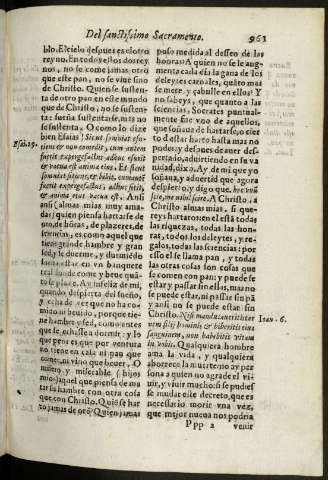 Del sanctissimo Sacramento. 963
blo. El cielo despues es el otro
reyno. En todos estos dos rey-
nos, no se come jamas otro
que este pan, no se viue sino
de Christo. Quien se susten-
ta de otro pan en este mundo
que de Christo, no se susten-
ta: sueña sustentarse, mas no
se sustenta. O como lo dize
bien Esaias!
Esai. 29.
Ansi
ansi almas mias muy ama-
das; quien piensa hartarse de
oro, de honras, de plazeres, de
sciencias, es como aquel que
tiene grande hambre y gran
sed, y le duerme, y durmiēdo
sueña estar en vn banquete
real donde come y beue quā-
to le plaze. Ay infelix de mi,
quando despierta del sueño,
y echa de ver que no ha co-
mido ni beuido, porque tie-
ne hambre y sed, como antes
que se echasse a dormir: y lo
que peor es, que por ventura
no tiene en casa ni pan que
comer, ni vino que beuer. O
misero y miserable (hijos
mios) aquel que piensa de ma-
tar su hambre con otra cosa
que con Christo. Quiē se har-
to jamas de oro? Quien jamas
puso medida al desseo de las
honras? A quien no se le aug-
menta cada dia la gana de los
deleytes carnales, quāto mas
se mete y cabulle en ellos? Y
no sabeys, que quanto a las
sciencias, Socrates puntual-
mente fue vno de aquellos,
que soñaua de hartarse, o cier-
to d'estar hecho harto mas no
poder: y despues de auer des-
pertado, aduirtiendo en su va-
nidad, dixo. Ay de mi que yo
soñaua, y aduertid que agora
despierto, y digo que, hoc vnũ
scio, me nihil scire. A Christo, a
Christo almas mias, si que-
reys hartaros: en el está todas
las riquezas, todas las hon-
ras, todos los deleytes, y re-
galos, todas las sciencias: por
esso el se llama pan, y todas
las otras cosas son cosas que
se comen con pan. Y puede se
estar y passar sin ellas, mas no
se puede estar, ni passar sin pā
y ansi no se puede estar sin
Christo. Nisi manducaueritis car-
Ioan. 6.
nem filij hominis & biberitis eius
sanguinem, non habebitis vitam
in vobis. Qualquiera hombre
ama la vida, y qualquiera
aborrece la muerte: no ay per-
sona que no le agrade el vi-
uir, y viuir mucho: si se pudies-
se mudar este decreto, que es
necessario morir vna vez,
que mejor nueua nos podria
Ppp 2 venir